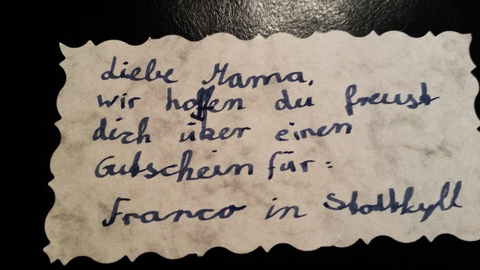 Liebe Mama,
wir hoffen du freust
dich über einen
Gutschein für:
Franco in Stadtkyll